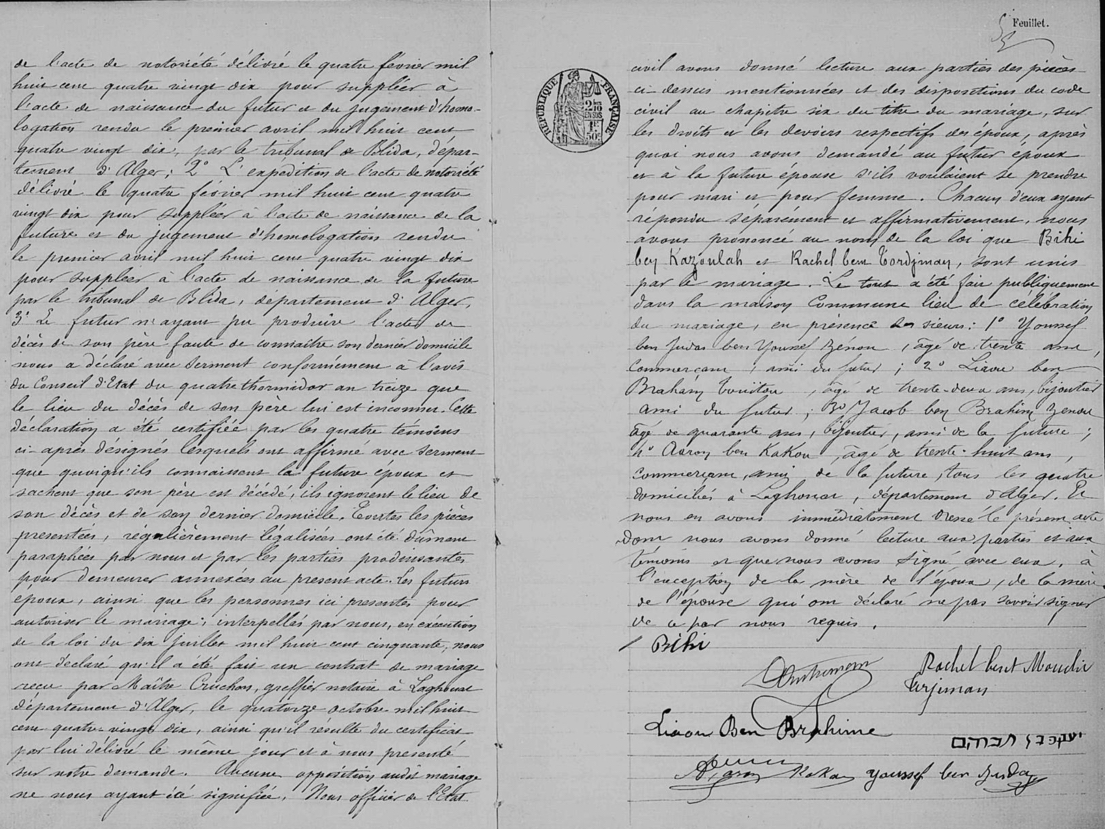 de l'acte de notoriété délivré le quatre février mil
huit cent quatre vingt dix pour suppléer à
l'acte de naissance du futur et du jugement d'homo-
logation rendu le premier avril mil huit cent
quatre vingt dix, par le tribunal de Blida, dépar-
tement d'Alger; 2° L'expédition de l'acte de notoriété
délivré le quatre février mil huit cent quatre
vingt dix pour suppléer à l'acte de naissance de la
future et du jugement d'homologation rendu
le premier avril mil huit cent quatre vingt dix
pour suppléer à l'acte de naissance de la future
par le tribunal de Blida, département d'Alger,
3° Le futur n'ayant pu produire l'acte de
décès de son père faute de connaître son dernier domicile
nous a déclaré avec serment conformément à l'avis
du Conseil d'Etat du quatre thermidor an treize que
le lieu du décès de son père lui est inconnu. Cette
déclaration a été certifiée par les quatre témoins
ci-après désignés lesquels ont affirmé avec serment
que quoiqu'ils connaissent le future époux et
sachent que son père est décédé, ils ignorent le lieu de
son décès et de son dernier domicile. Toutes les pièces
présentées, régulièrement légalisées ont été dûment
paraphées par nous et par les parties produisantes
pour demeurer annexées au présent acte. Les futurs
époux, ainsi que les personnes ici présentes pour
autoriser le mariage, interpellés par nous, en exécution
de la loi du dix juillet mil huit cent cinquante, nous
ont déclaré qu'il a été fait un contrat de mariage
reçu par Maître Cruchon, greffier notaire à Laghouat
département d'Alger, le quatorze octobre mil huit
cent quatre vingt dix, ainsi qu'il résulte du certificat
par lui délivré le même jour et à nous présenté
sur notre demande. Aucune opposition audit mariage
ne nous ayant été signifiée. Nous officier de l'Etat
Feuillet.
RÉPUBLIQUE FRANÇAISE
civil avons donné lecture aux parties des pièces
ci-dessus mentionnées et des dispositions du code
civil au chapitre six du titre du mariage, sur
les droits et les devoirs respectifs des époux, après
quoi nous avons demandé au futur époux
et à la future épouse s'ils voulaient se prendre
pour mari et pour femme. Chacun d'eux ayant
répondu séparément et affirmativement, nous
avons prononcé au nom de la loi que Bihi
ben Kazoulah et Rachel bent Tordjman, sont unis
par le mariage. Le tout a été fait publiquement
dans la maison Commune lieu de célébration
du mariage, en présence des sieurs: 1° Youssef
ben Judas ben Youssef Zenou, âgé de trente ans,
commerçant, ami du futur; 2° Liaou ben
Braham Touitou, âgé de trente-deux ans, bijoutier
ami du futur; 3° Jacob ben Brahim Zenou
âgé de quarante ans, bijoutier, ami de la future;
4° Aaron ben Kakou, âgé de trente-huit ans,
commerçant, ami de la future, tous les quatre
domiciliés à Laghouat, département d'Alger. Et
nous en avons immédiatement dressé le présent acte
dont nous avons donné lecture aux parties et aux
témoins et que nous avons signé avec eux, à
l'exception de la mère de l'époux, de la mère
de l'épouse qui ont déclaré ne pas savoir signer
de ce par nous requis.
Bihi
Rachel bent Mouchi
Terjiman
Liaou Ben Brahime
Aaron Kakou Youssef ben Juda